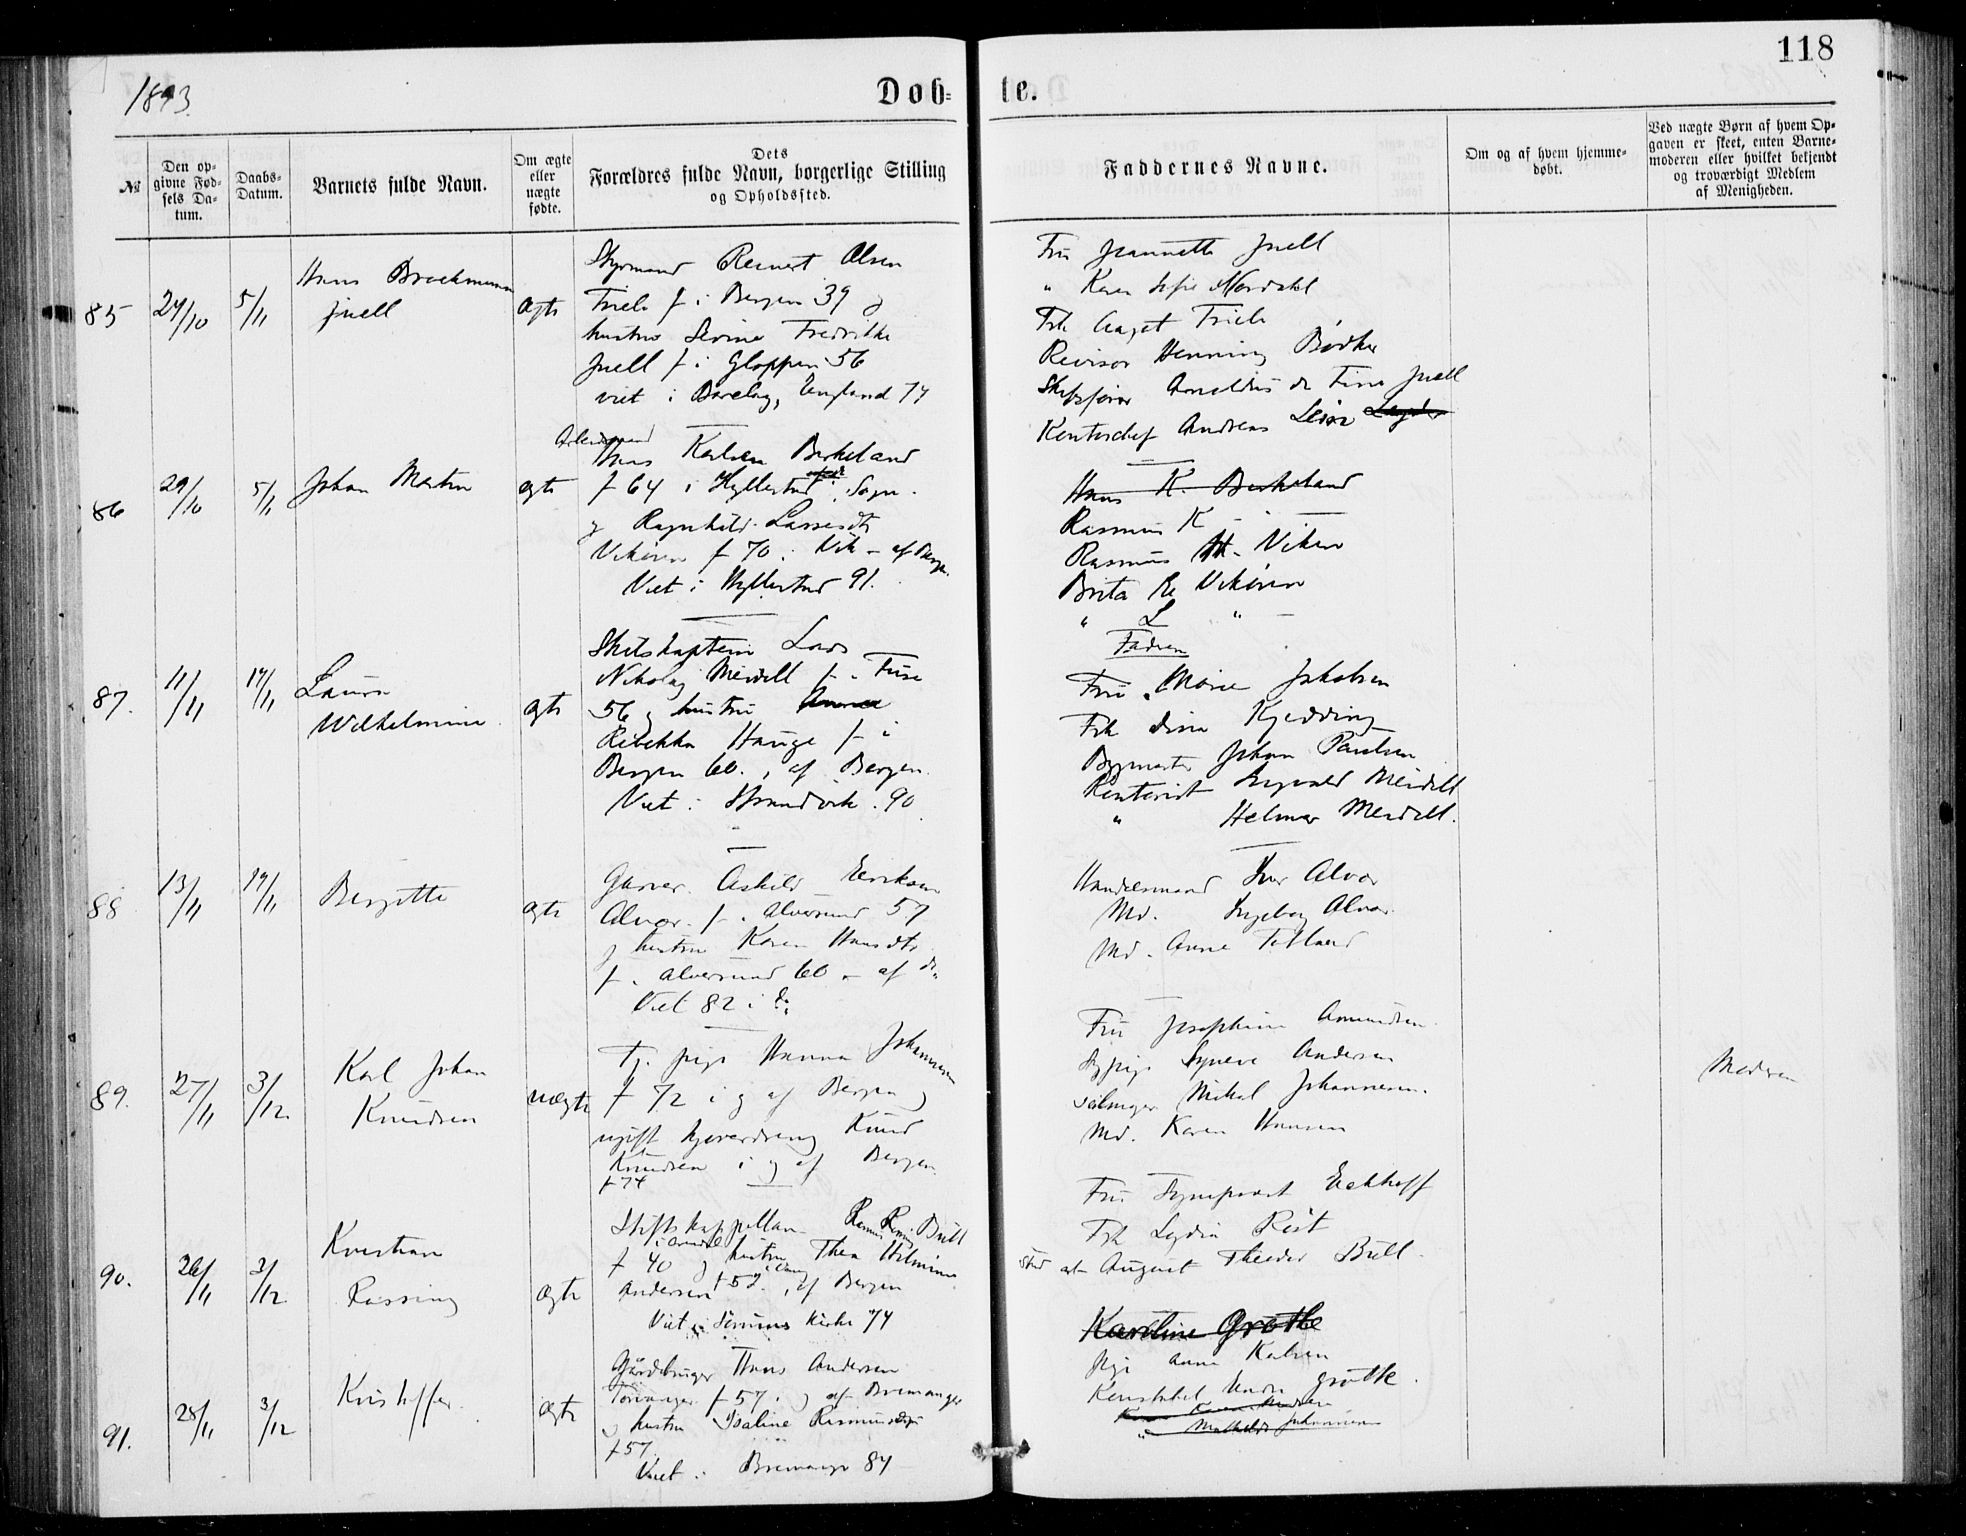 118
1893.
Døb-
te.
№
Den op-
givne Fød-
sels Da-
tum.
Daabs-
Datum.
Barnets fulde Navn.
Om ægte
eller
uægte
fødte.
Dets
Forældres fulde Navn, borgerlige Stilling
og Opholdssted.
Faddernes Navne.
Om og af hvem hjemme-
døbt.
Ved uægte Børn af hvem Op-
gaven er skeet, enten Barne-
moderen eller hvilket bekjendt
og troværdigt Medlem
af Menigheden.
85
24/10
5/11
Hans Brockmann
Juell
ægte
Styrmand Reinert Olsen
f i Bergen 39 og
hustru Severine Fredrikke
Juell f i Gloppen 56
viet i Barclay, England 74
Fru Jeannette Juell
" Karen Sofie Mordahl
Frk Aagot
Revisor Henning Bødker
Skibsfører Arnoldus Juell
Kontorchef Andreas
86
29/10
5/11
Johan Martin
ægte
Arbeidsmand
Hans Karlsen Birkeland
f 64 i Hyllestad i Sogn.
og Ragnhild Lassesdtr
Vikøren f 70 i Vik - af Bergen.
Viet i Hyllestad 91.
Hans K. Birkeland
Rasmus K - " -
Rasmus H. Viken
Brita Vikøren
" L " -
Fadren
87.
11/11
19/11
Laura
Wilhelmine
ægte
Skibskaptein Lars
Nikolaj Meidell f i Fuse
56 og hustru Anna
Rebekka Hauge f i
Bergen 60., af Bergen.
Viet i Strandvik. 90.
Fru Marie Jakobsen
Frk Dina Kjedding
Bygmester Johan Paulsen
Kontorist Ingvald Meidell
" Helmer Meidell.
88
13/11
19/11
Bergitte
ægte
Garver Askild Eriksen
Alver f i Alversund 57
og hustru Karen Hansdtr
f i Alversund 60 - af do
Viet 82 i do
Handelsmand Iver Alver
Md. Ingeborg Alver.
Md. Anne Tetland
89.
27/11
3/12
Karl Johan
Knudsen
uægte
Tj. pige Hanna Johannesen
f 72 i og af Bergen og
ugift Knud
Knudsen i og af Bergen.
f 74
Fru Josephine Amundsen.
Sypige Synneve Andersen
Seilmager Mikal Johannesen.
Md. Karen Hansen
Moderen
90.
26/11
3/12
Kristian
Rossing
ægte
Stiftskappellan Bull
f 40 og hustru Thea Wilmine
Andersen f 52., af Bergen
Viet i kirke 74
Fru Eckhoff
Frk Lydia
Stud art August Theodor Bull.
91.
28/11
3/12
Kristoffer.
ægte
Gårdbruger Hans Andersen
f 57 i og af Bremanger
og hustru Isaline Rasmusdtr
f 57.
Viet i Bremanger 84
Karoline Grotle
Pige Anna Karlsen
Konstabel Grotle.
" Mathilde Johannesen